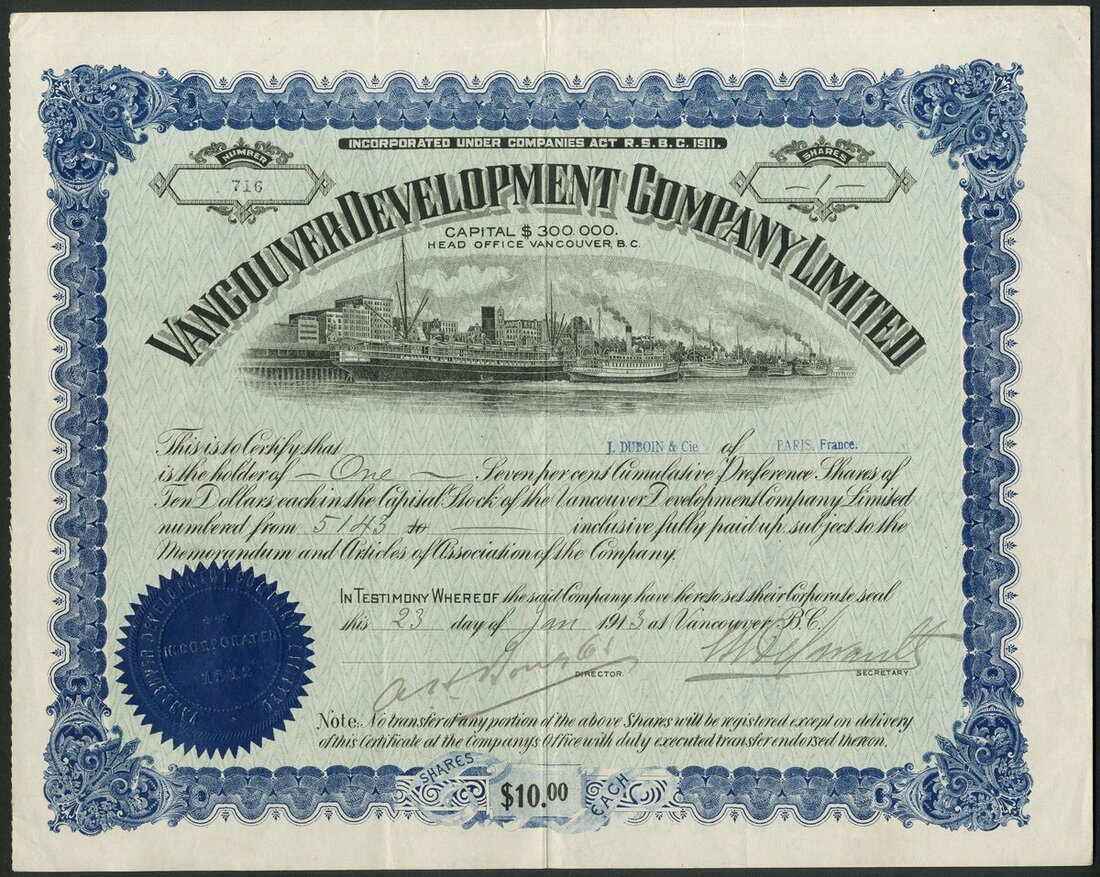 INCORPORATED UNDER COMPANIES ACT R.S.B.C. 1911.
NUMBER
716
SHARES
— 1 —
VANCOUVER DEVELOPMENT COMPANY LIMITED
CAPITAL $300.000.
HEAD OFFICE VANCOUVER, B.C.
This is to Certify that J. DUBOIN & Cie of PARIS, France.
is the holder of — One — Seven per cent Cumulative Preference Shares of
Ten Dollars each in the Capital Stock of the Vancouver Development Company Limited
numbered from 5143 to ——— inclusive fully paid up, subject to the
Memorandum and Articles of Association of the Company.
IN TESTIMONY WHEREOF the said Company have hereto set their Corporate seal
this 23 day of Jan 1913 at Vancouver, B.C.
DIRECTOR.
SECRETARY.
VANCOUVER DEVELOPMENT COMPANY LIMITED
INCORPORATED
1912
Note. No transfer of any portion of the above Shares will be registered except on delivery
of this Certificate at the Company's Office with duly executed transfer endorsed thereon.
SHARES
$10.00
EACH